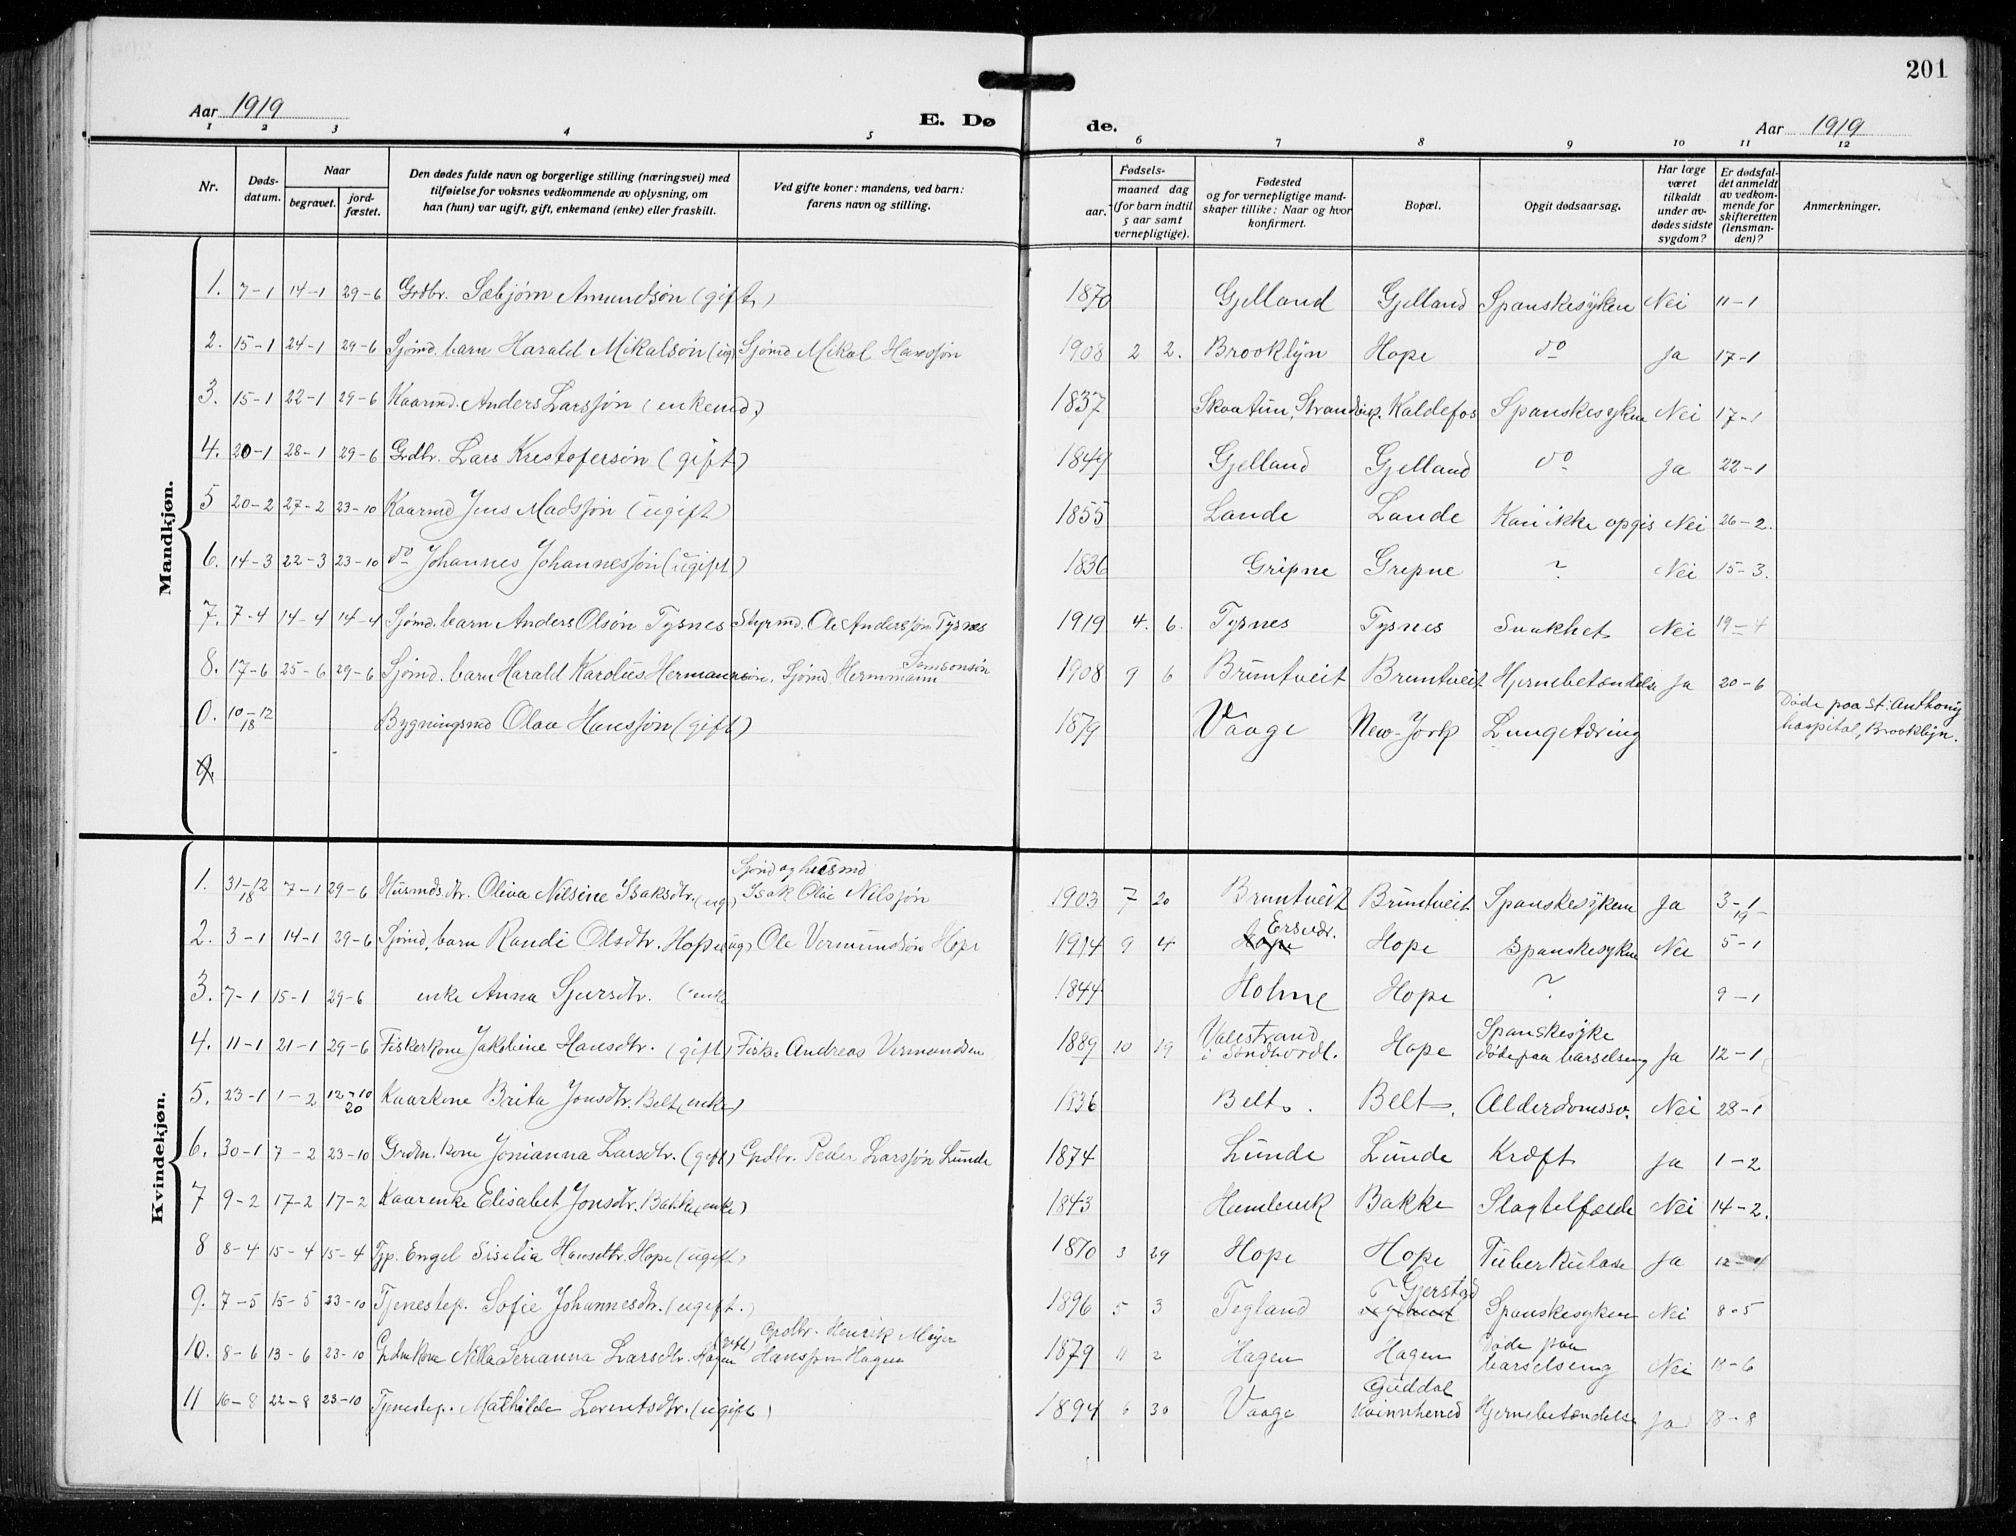 201
Aar 1919 E. Dø de. Aar 1919
1 2 3 4 5 6 7 8 9 10 11 12
Nr.
Døds-
datum.
Naar
begravet.
jord-
fæstet.
Den dødes fulde navn og borgerlige stilling (næringsvei) med
tilføielse for voksnes vedkommende av oplysning, om
han (hun) var ugift, gift, enkemand (enke) eller fraskilt.
Ved gifte koner: mandens, ved barn:
farens navn og stilling.
Fødsels-
aar.
maaned dag
(for barn indtil
5 aar samt
vernepligtige).
Fødested
og for vernepligtige mand-
skaper tillike: Naar og hvor
konfirmert.
Bopæl.
Opgit dødsaarsag.
Har læge
været
tilkaldt
under av-
dødes sidste
sygdom?
Er dødsfal-
det anmeldt
av vedkom-
mende for
skifteretten
(lensman-
den)?
Anmerkninger.
Mandkjøn.
1. 7-1 14-1 29-6 Grdbr. Sæbjørn Amundsøn (gift) 1870 Gjelland Gjelland Spanskesyken Nei 11-1
2. 15-1 24-1 29-6 Sjømd. barn Harald Mikalsøn (ug) Sjømd Mikal Hansson 1908 2 2. Brooklyn Hope do Ja 17-1
3. 15-1 22-1 29-6 Kaarmd. Anders Larsson (enkemd.) 1837 Skaatun, Strandvik. Kaldefos Spanskesyken Nei 17-1
4. 20-1 28-1 29-6 Grdbr. Lars Kristofersøn (gift) 1849 Gjelland Gjelland do Ja 22-1
5 20-2 27-2 23-10 Kaarmd Jens Madsson (ugift) 1855 Lande Lande Kan ikke opgis Nei 26-2.
6. 14-3 22-3 23-10 do Johannes Johannesson (ugift) 1836 Gripne Gripne ? Nei 15-3.
7. 7-4 14-4 14-4 Sjømd. barn Anders Olsøn Tysnes Styrmd. Ole Andersson Tysnes 1919 4. 6. Tysnes Tysnes Svakhet Nei 19-4
8. 17-6 25-6 29-6 Sjømd. barn Harald Karolus Hermansøn. Sjømd Hermmann Samsonsøn 1908 9 6 Bruntveit Bruntveit Hjernebetændelse Ja 20-6
0. 10-12 18 Bygningsmd Olaa Hansson (gift) 1879 Vaage New-York Lungetæring Døde paa St. Anthony
hospital, Brooklyn.
9.
Kvindekjøn.
1. 31-12 18 7-1 29-6 Husmds. dtr. Oliva Nilsine Isaksdtr. (ug) Sjømd og husmd
Isak Olai Nilsson 1903 7 20 Bruntveit Bruntveit Spanskesyken Ja 3-1 19
2. 3-1 14-1 29-6 Sjømd. barn Randi Olsdtr. Hope (ug) Ole Vermundsøn Hope 1914 9 4 Hope Ersvær. Hope Spanskesyken Nei 5-1
3. 7-1 15-1 29-6 enke Anna Sjursdtr. (enke 1844 Holme Hope ? 9-1
4. 11-1 21-1 29-6 Fiskerkone Jakobine Hansdtr. (gift) Fisk. Andreas Vermundsen 1889 10 19 Valestrand
i Søndhordl. Hope Spanskesyke
døde paa barselseng Ja 12-1
5. 23-1 1-2 12-10 20 Kaarkone Brita Jonsdtr. Belt (enke) 1836 Belt. Belt. Alderdomssv. Nei 28-1
6. 30-1 7-2 23-10 Grdm. kone Jonianna Larsdtr. (gift) Grdbr. Peder Larsson Lunde 1874 Lunde Lunde Kræft Ja 1-2
7 9-2 17-2 17-2 Kaarenke Elisabet Jonsdtr. Bakke (enke) 1843 Humlevik Bakke Slagtelfælde Nei 14-2.
8 8-4 15-4 15-4 Tjp. Engel Sisilia Hansdtr. Hope (ugift) 1870 3 29 Hope Hope Tuberkulose Ja 12-4
9. 7-5 15-5 23-10 Tjenestep. Sofie Johannesdtr. (ugift.) 1896 5 3 Tegland Tegland Gjerstad Spanskesyken Nei 8-5
10. 8-6 13-6 23-10 Grdm kone Nilla Serianna Larsdtr. Hagen (gift) Grdbr. Henrik Meyer
Hansson Hagen 1879 11 2 Hagen Hagen Døde paa
barselseng Nei 11-6
11 16-8 22-8 23-10 Tjenestep. Mathilde Lorentsdtr. (ugift) 1894 6 30 Vaage Guddal
Kvinnherred Hjernebetændelse Ja 18-8